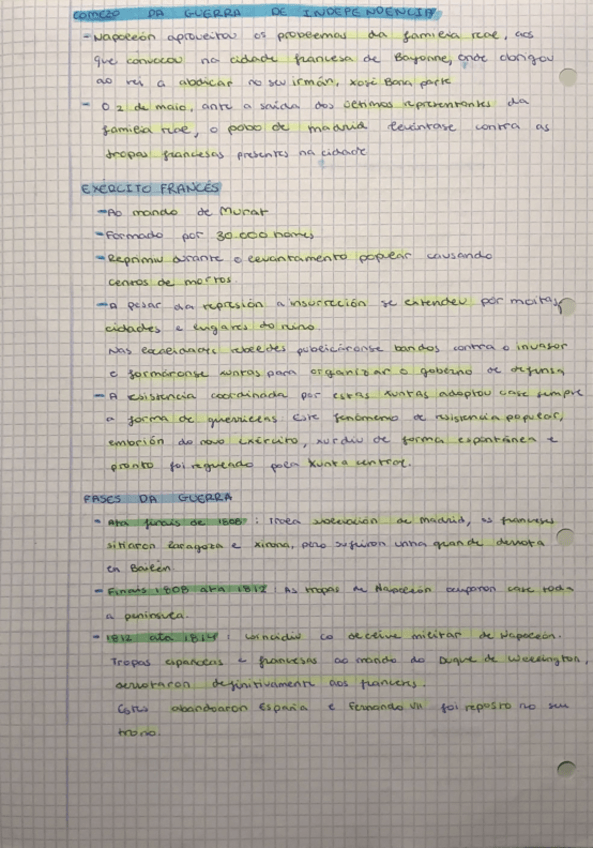 COMEZO DA GUERRA DE INDEPENDENCIA
- Napoleón aproveitou os problemas da familia real, aos
que convocou na cidade francesa de Bayonne, onde obrigou
ao rei a abdicar no seu irmán, Xosé Bonaparte
- O 2 de maio, ante a saída dos últimos representantes da
familia real, o pobo de Madrid levántase contra as
tropas francesas presentes na cidade
EXÉRCITO FRANCÉS
- Ao mando de Murat
- Formado por 30.000 homes
- Reprimiu durante o levantamento popular causando
centos de mortos.
- A pesar da represión a insurrección se extendeu por moitas
cidades e lugares do reino.
Nas localidades rebeldes publicáronse bandos contra o invasor
e formáronse xuntas para organizar o goberno de defensa
- A resistencia coordinada por estas xuntas adoptou case sempre
a forma de guerrillas. Este fenómeno de resistencia popular,
embrión do novo exército, xurdiu de forma espontánea e
pronto foi regulado pola Xunta central.
FASES DA GUERRA
- Ata finais de 1808: Trala sublevación de Madrid, os franceses
sitiaron Zaragoza e Xirona, pero sufriron unha grande derrota
en Bailén
- Finais 1808 ata 1812: As tropas de Napoleón ocuparon case toda
a península.
- 1812 ata 1814: coincidiu co declive militar de Napoleón.
Tropas españolas e francesas ao mando do Duque de Wellington,
derrotaron definitivamente aos franceses.
Estes abandoaron España e Fernando VII foi reposto no seu
trono.